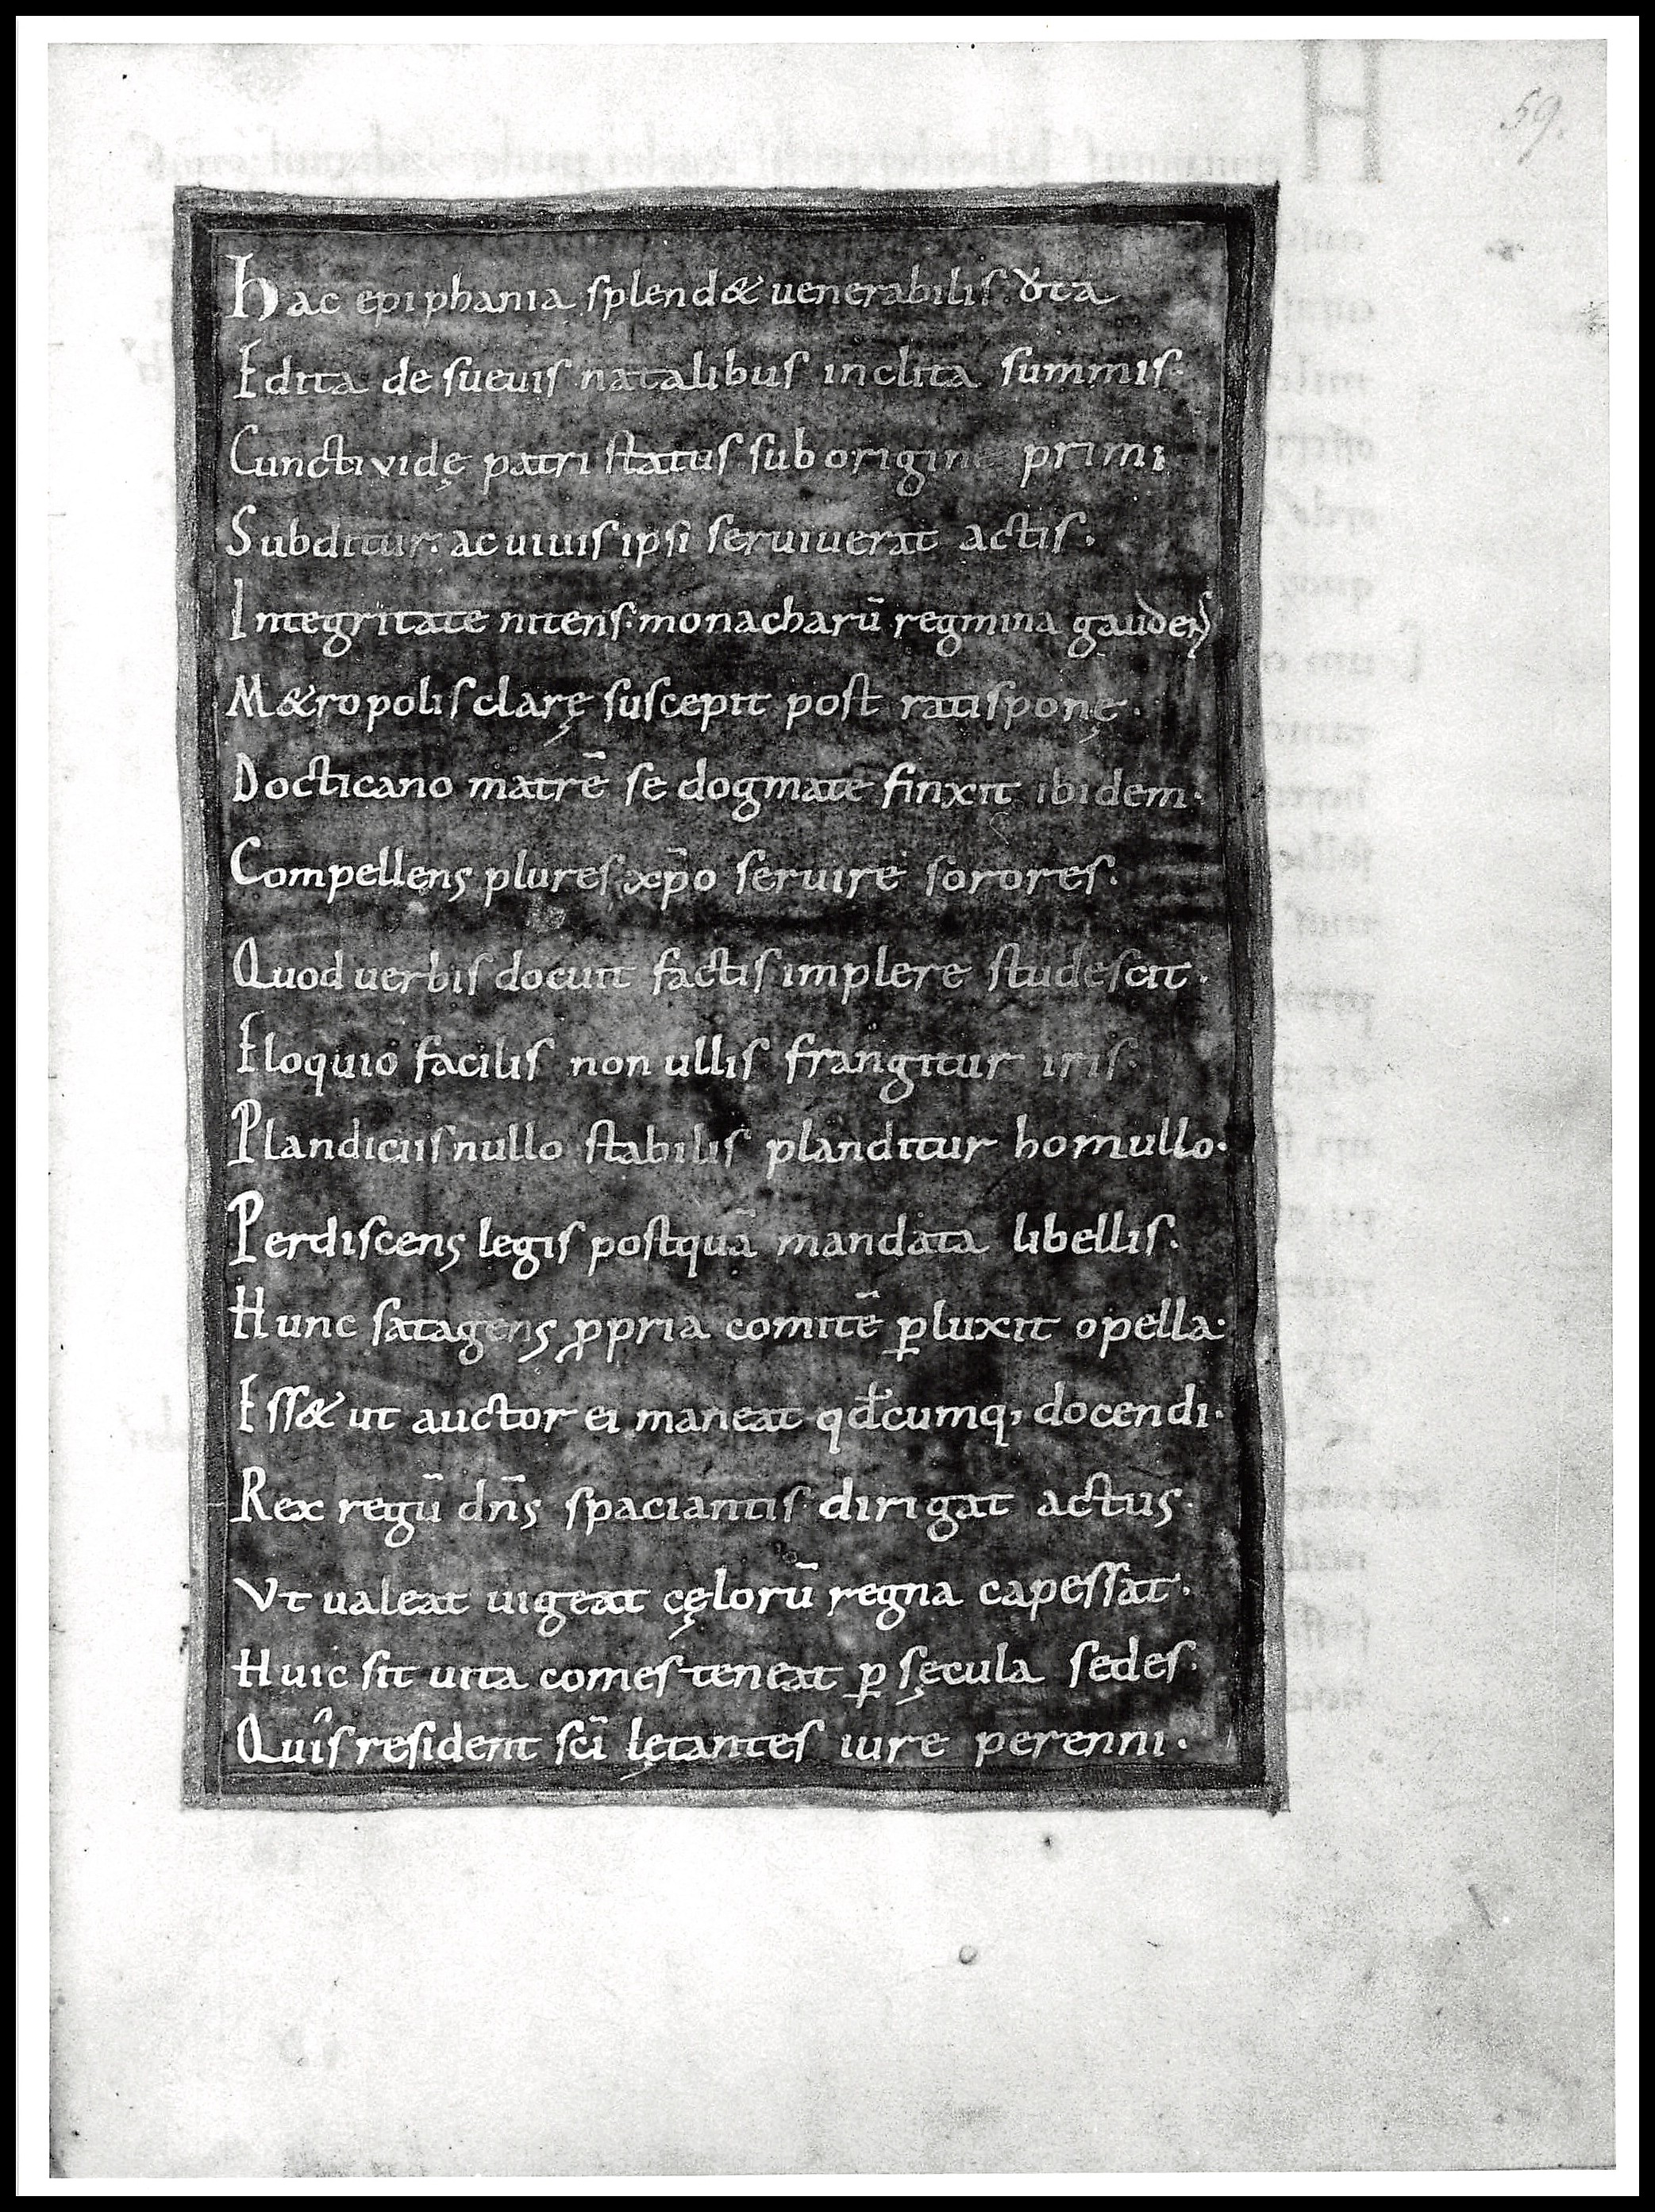 59.
Hac epiphania splend& uenerabilis Uta
Edita de sueuis natalibus inclita summis.
Cuncti vidę patri status sub origine primi
Subditur. ac uiuis ipsi seruiuerat actis.
Integritate nitens. monacharū regmina gaudens
M&ropolis clarę suscepit post ratisponę.
Docticano matrē se dogmate finxit ibidem.
Compellens plures xp̄o seruire sorores.
Quod uerbis docuit factis implere studescit.
Eloquio facilis non ullis frangitur iris.
Plandiciis nullo stabilis planditur homullo.
Perdiscens legis postquā mandata libellis.
Hunc satagens ꝓpria comitē ꝑluxit opella.
Ess& ut auctor ei maneat qđcumq; docendi.
Rex regū dn̄s spaciantis dirigat actus.
Vt ualeat uigeat cęlorū regna capessat.
Huic sit uita comes teneat ꝑ sęcula sedes.
Quîs resident sc̄i lętantes iure perenni.